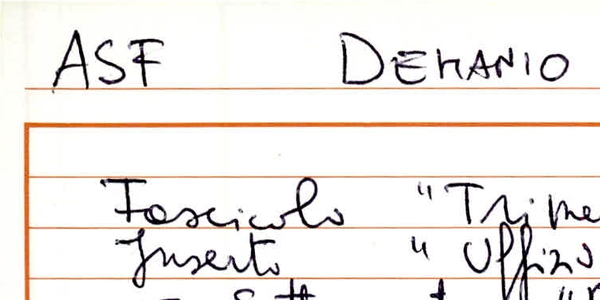 ASF DEMANIO
Fascicolo "Trime
Inserto " Uffizo